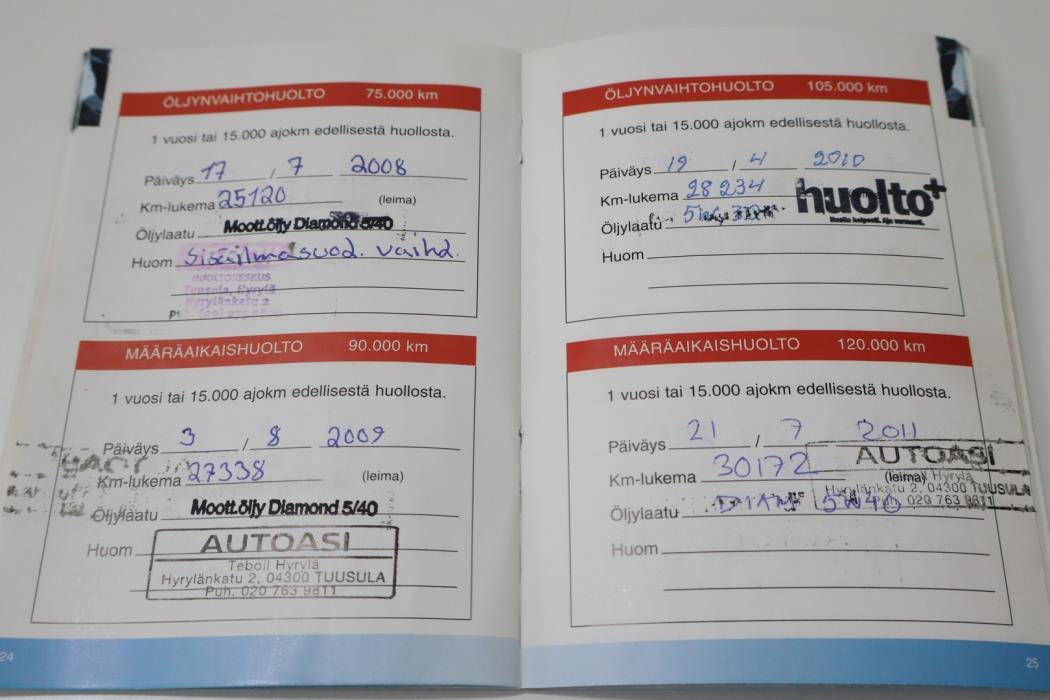 ÖLJYNVAIHTOHUOLTO 75.000 km
1 vuosi tai 15.000 ajokm edellisestä huollosta.
Päiväys 17 / 7 2008
Km-lukema 25120 (leima)
Öljylaatu Moott.öljy Diamond 5/40
Huom Sisäilmasuod. vaihd.
HUOLTOKESKUS
Tuusula, Hyrylä
Hyrylänkatu 2
MÄÄRÄAIKAISHUOLTO 90.000 km
1 vuosi tai 15.000 ajokm edellisestä huollosta.
Päiväys 3 / 8 2009
Km-lukema 27338 (leima)
Öljylaatu Moott.öljy Diamond 5/40
Huom
AUTOASI
Teboil Hyrylä
Hyrylänkatu 2, 04300 TUUSULA
Puh. 020 763 9811
24
ÖLJYNVAIHTOHUOLTO 105.000 km
1 vuosi tai 15.000 ajokm edellisestä huollosta.
Päiväys 19 / 4 2010
Km-lukema 28234
huolto+
Öljylaatu
Huom
MÄÄRÄAIKAISHUOLTO 120.000 km
1 vuosi tai 15.000 ajokm edellisestä huollosta.
Päiväys 21 / 7 2011
AUTOASI
Km-lukema 30172 (leima)
Hyrylä
Hyrylänkatu 2, 04300 TUUSULA
020 763 9811
Öljylaatu DIAM 5W40
Huom
25